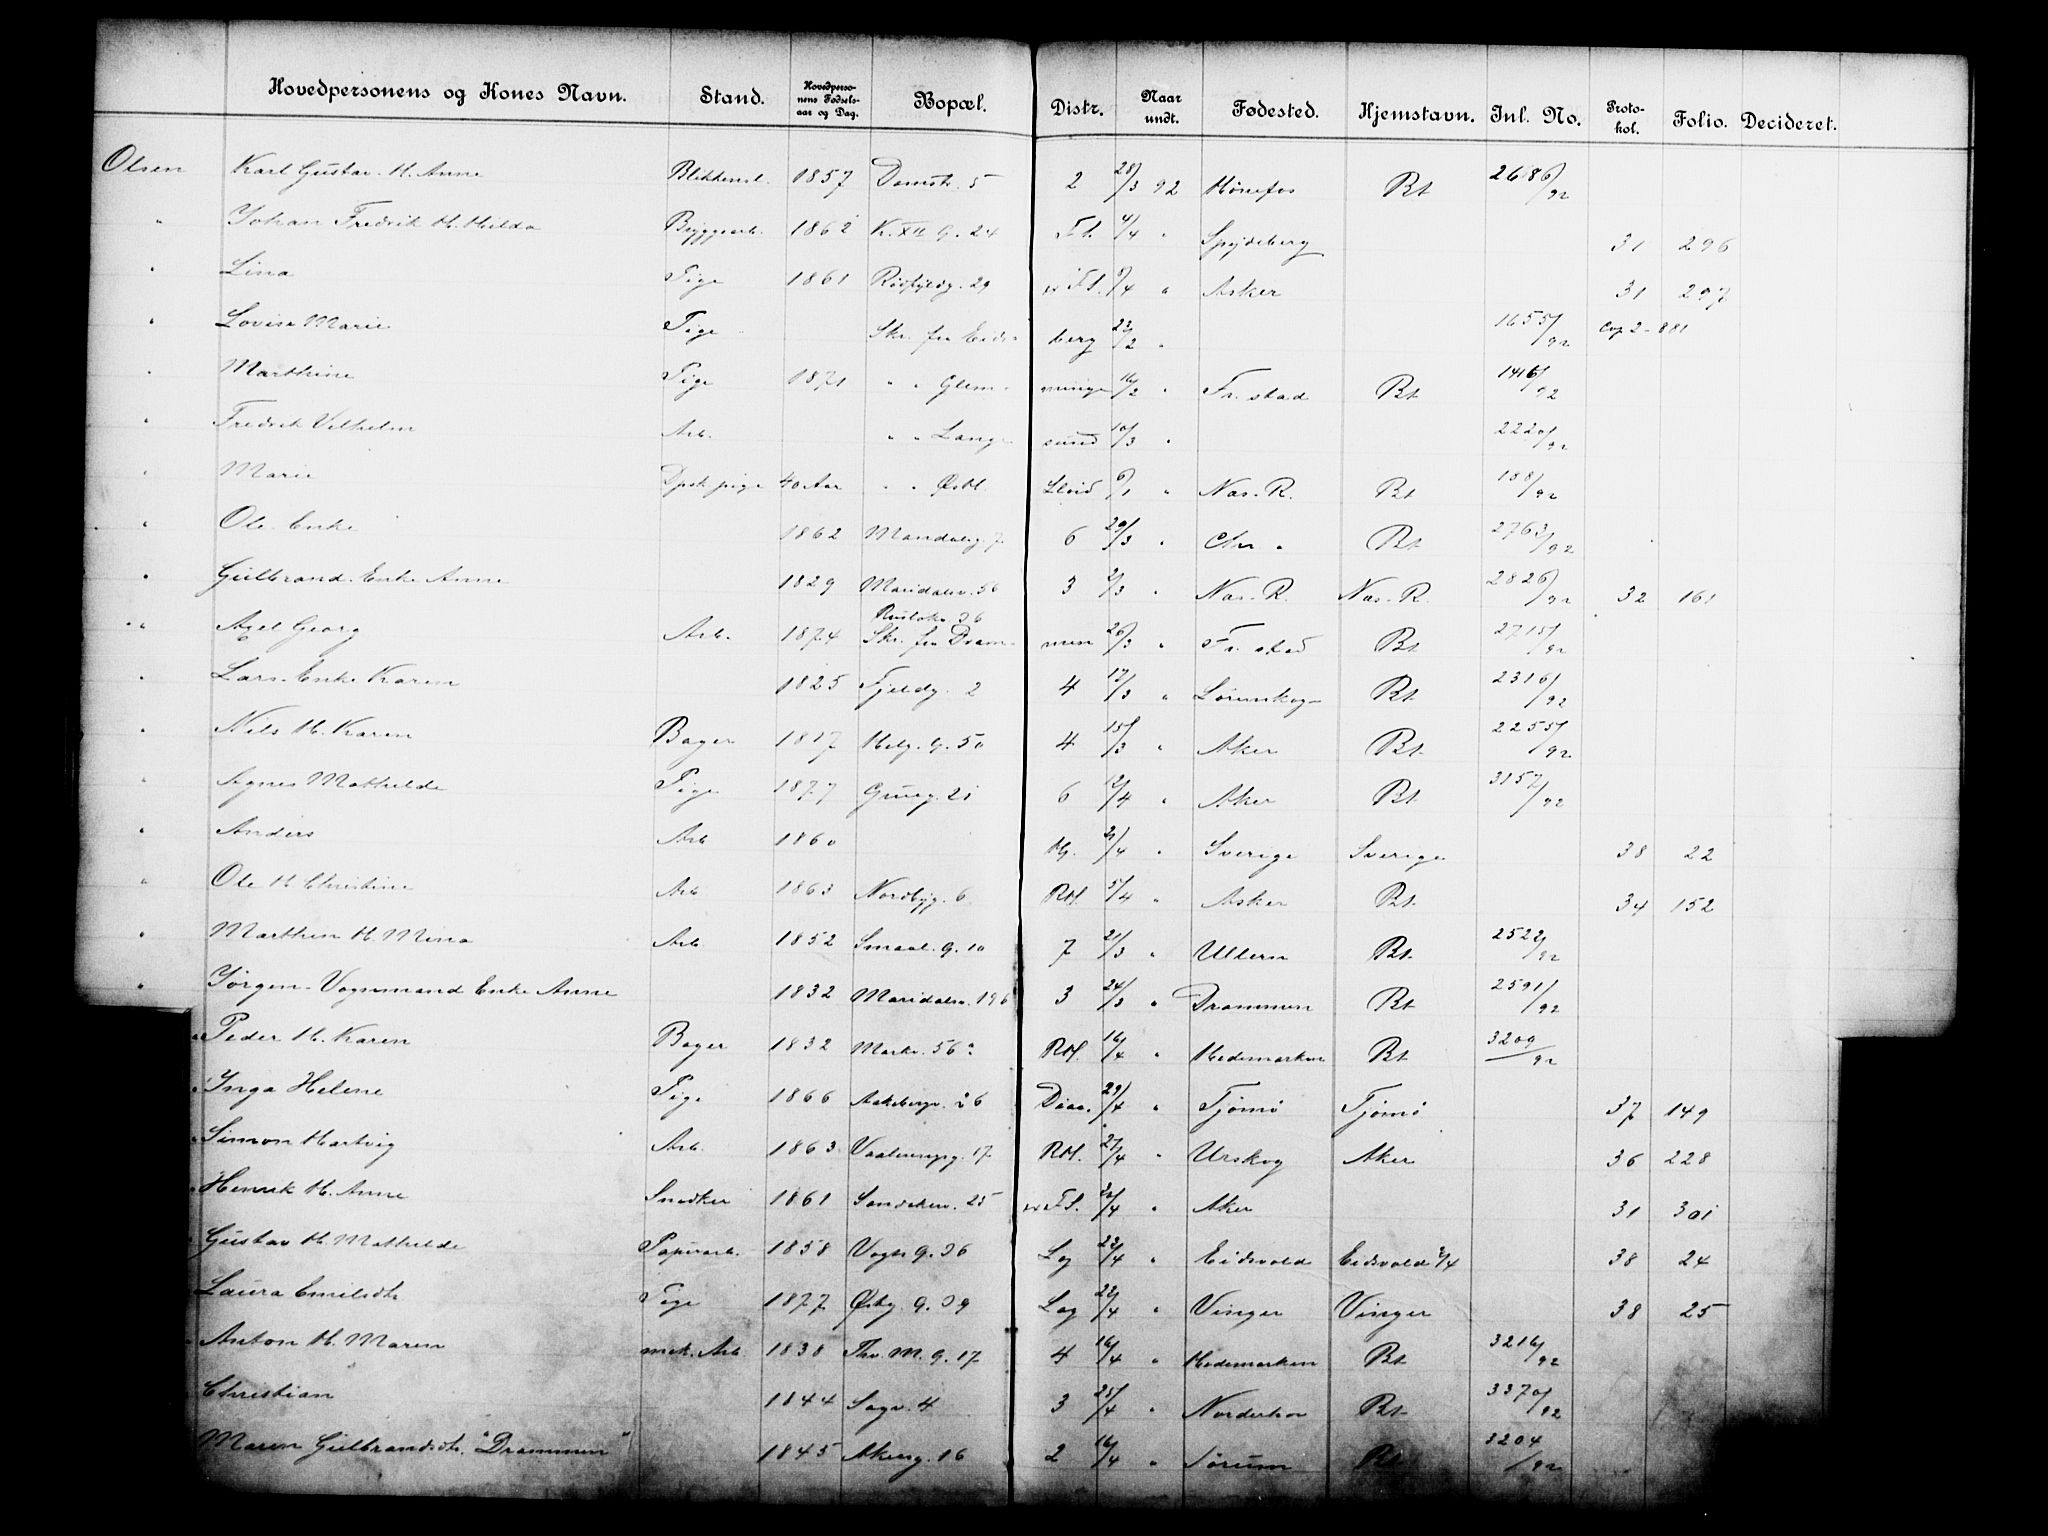 Hovedpersonens og Kones Navn. Stand. Hovedpersonens Fødselsaar og Dag. Bopæl. Distr. Naar undt. Fødested. Hjemstavn. Inl. No. Protokol. Folio. Decideret.
Olsen Karl Gustav. H. Anne Blikkensl. 1857 Damstr. 5 2 28/3 92 Hønefos Bt 2686/92
" Johan Fredrik H. Hilda Byggearb. 1862 K. XII G. 24 Fl. 4/4 " Spydeberg 31 296
" Lina Pige 1861 Rødfyldg. 29 Fl. 9/4 " Asker 31 297
" Lovise Marie Pige Skr. fra Eids- berg 23/2 " 1655/92 Cop 2-881
" Marthine Pige 1871 " " Glem- minge 16/2 " Fr. stad Bt 1416/92
" Fredrik Vilhelm Arb. " " Lange- sund 10/3 " 2220/92
" Marie Dpsk pige 40 Aar " " Østl. Lloid 6/1 " Nas. R. Bt 188/92
" Ole Enke 1862 Mandalsg. 7 6 29/3 " Chr. " Bt 2763/92
" Gulbrand. Enke Anne 1829 Maridalsv. 56 3 2/3 " Nas. R. Nas. R. 2826/92 32 161
Rusløkv. 36
" Axel Georg Arb. 1874 Skr. fra Dram- men 26/3 " Fr. stad Bt 2715/92
" Lars. Enke Karen 1825 Fjeldg. 2 4 17/3 " Lørenskog Bt 2316/92
" Nils H. Karen Bager 1817 Helg. G. 50 4 15/3 " Aker Bt 2255/92
" Agnes Mathilde Pige 1877 Grueg. 21 6 12/4 " Aker Bt 3157/92
" Anders Arb 1860 Hj. 2/4 " Sverige Sverige 38 22
" Ole H Christine Arb 1863 Nordbyg. 6 RH. 5/4 " Asker Bt 34 152
" Marthin H. Mina Arb 1852 Smaal. G. 10 7 21/3 " Ullern Bt 2522/92
" Jørgen-Vognmand Enke Anne 1832 Maridalsv. 196 3 24/3 " Drammen Bt 2591/92
" Peder H. Karen Bager 1832 Markv. 56 a RH. 16/4 " Hedemarken Bt 3209/92
" Inga Helene Pige 1866 Aakebergv. 26 Diac. 29/4 " Tjømø Tjømø 37 149
" Simon Hartvig Arb. 1863 Vaalerengsg. 17 RH. 27/4 " Urskog Aker 36 228
" Henrik H. Anne Snedker 1861 Sandakerv. 25 Fl. 20/4 " Aker 31 301
" Gustav H. Mathilde Papirarb. 1858 Vogts G. 36 Lag 23/4 " Eidsvold Eidsvold 3/4 38 24
Laura Emilsdtr Pige 1877 Østg. G. 39 Lag 22/4 " Vinger Vinger 38 25
" Anton H. Maren mek. Arb. 1838 Thv. M. G. 17 4 16/4 " Hedemarken Bt 3216/92
" Christian 1844 Sagv. 4 3 25/4 " Norderhov Bt 3370/92
Maren Gulbrandsdtr. "Drammen" 1845 Akersg. 16 2 16/4 " Sørum Bt 3204/92